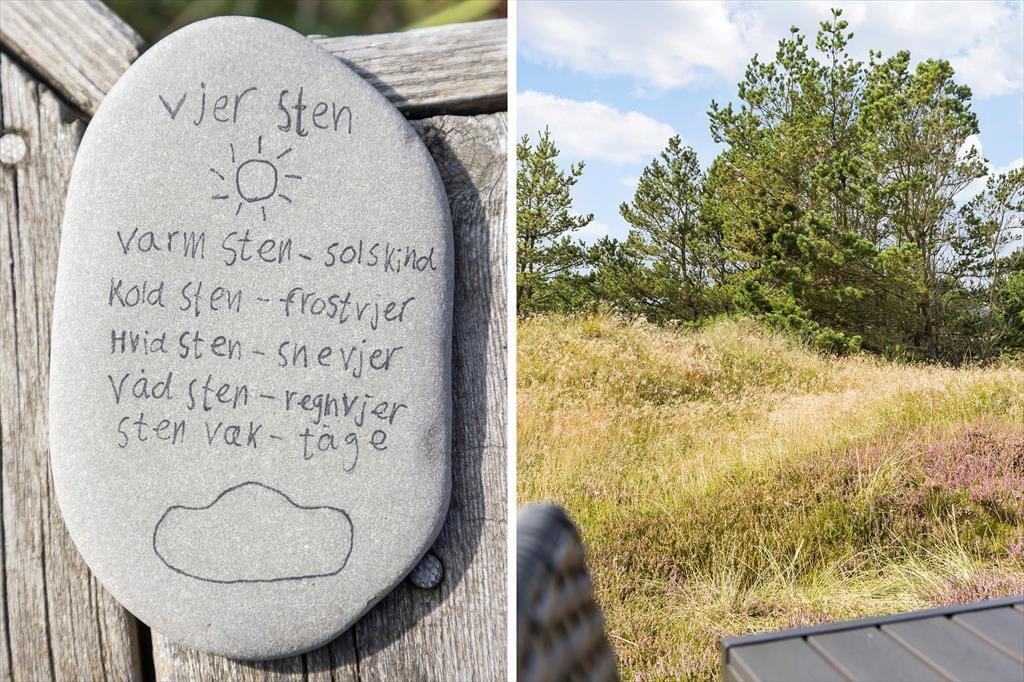 vjer sten
varm sten - solskind
Kold sten - frostvjer
Hvid sten - snevjer
våd sten - regnvjer
sten væk - tåge